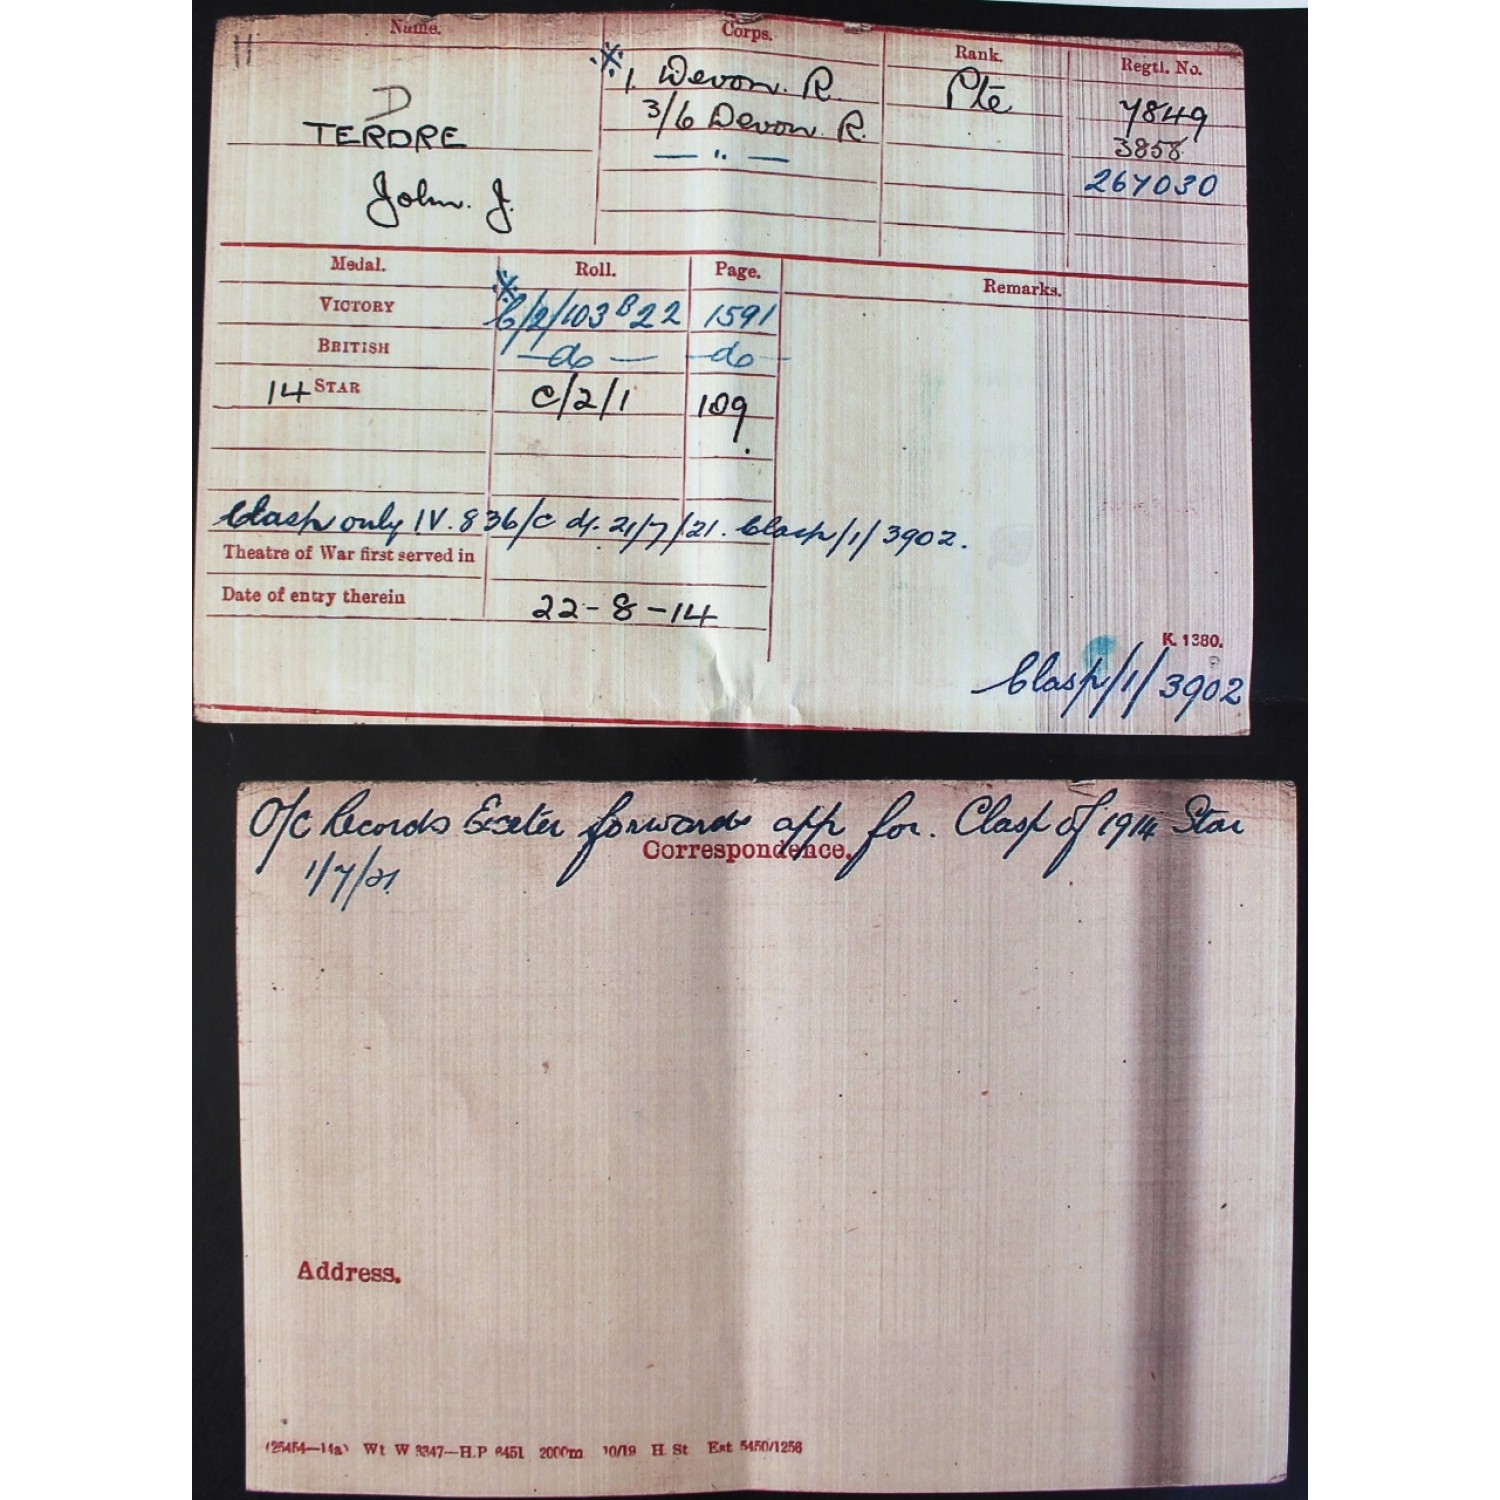 Name. Corps. Rank. Regtl. No.
D
TERDRE
John. J.
1. Devon. R. Pte 7849
3/6 Devon. R. 3858
— " — 267030
Medal. Roll. Page. Remarks.
VICTORY C/2/103 B22 1591
BRITISH —do— —do—
14 STAR C/2/1 109.
Clasp only IV. 836/C df. 21/7/21. Clasp/1/3902.
Theatre of War first served in
Date of entry therein 22-8-14
K. 1380.
Clasp/1/3902
O/C Records Exeter forwards app for. Clasp of 1914 Star
Correspondence.
1/7/21
Address.
(25454—14a) Wt W 3347—H.P 6451 2000m 10/19 H. St Est 5450/1256